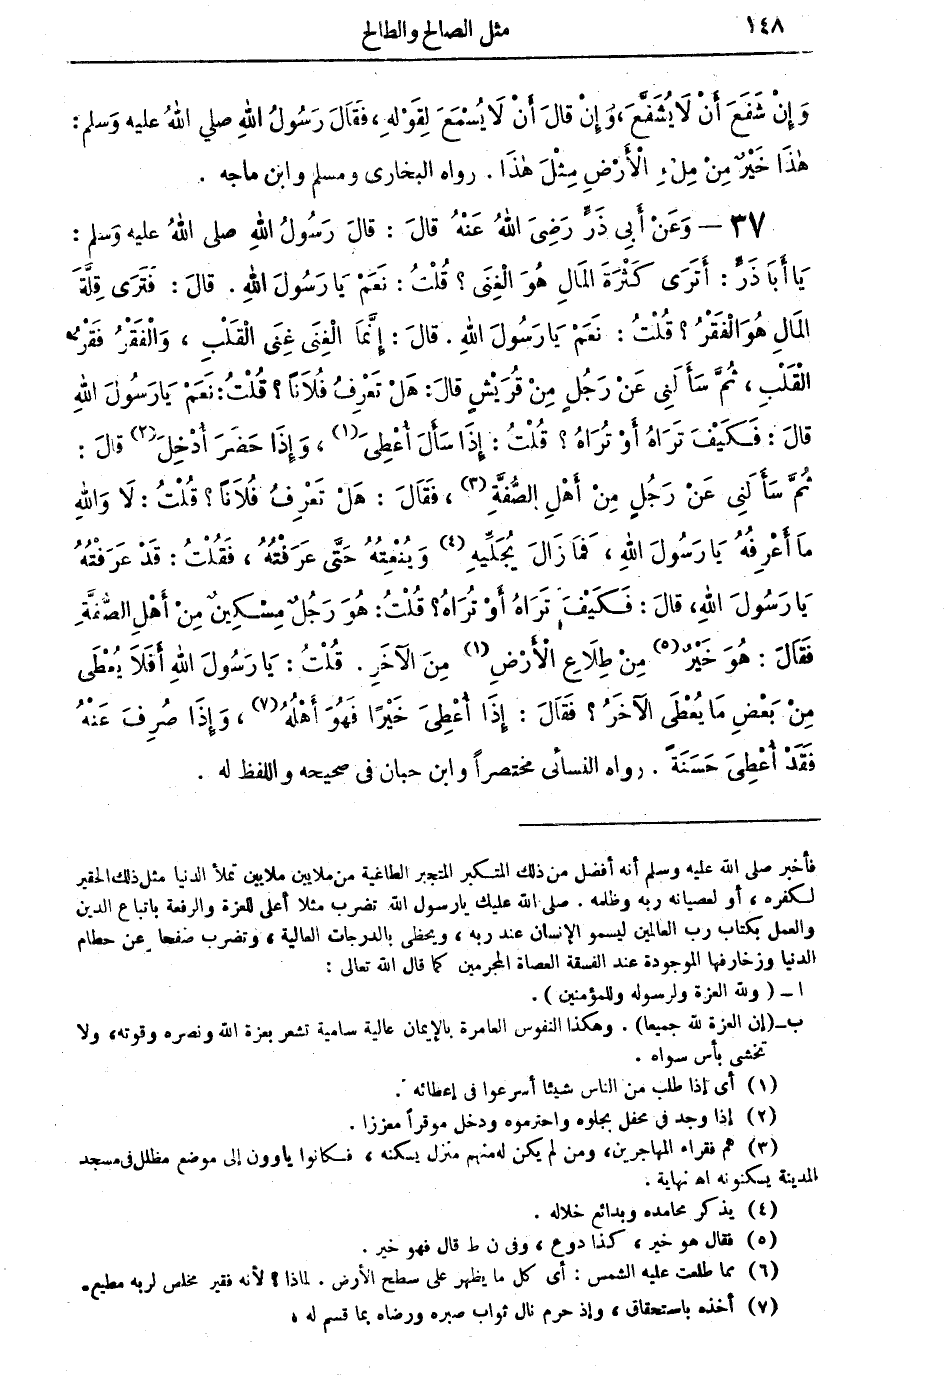 ١٤٨
مثل الصالح والطالح
وَإِنْ شَفَعَ أَنْ لَا يُشَفَّعَ، وَإِنْ قَالَ أَنْ لَا يُسْمَعَ لِقَوْلِهِ، فَقَالَ رَسُولُ اللهِ صلي اللهُ عليه وَسلم :
هٰذَا خَيْرٌ مِنْ مِلْءِ الْأَرْضِ مِثْلَ هٰذَا . رواه البخارى ومسلم وابن ماجه .
٣٧ – وَعَنْ أَبِى ذَرٍّ رَضِىَ اللهُ عَنْهُ قَالَ : قَالَ رَسُولُ اللهِ صلى اللهُ عليه وَسلم :
يَا أَبَا ذَرٍّ : أَتَرَى كَثْرَةَ المَالِ هُوَ الْغِنَى ؟ قُلْتُ : نَعَمْ يَا رَسُولَ اللهِ . قالَ : فَتَرَى قِلَّةَ
المَالِ هُوَ الْفَقْرُ ؟ قُلْتُ : نَعَمْ يَا رَسُولَ اللهِ . قالَ : إِنَّمَا الْغِنَى غِنَى الْقَلْبِ ، وَالْفَقْرُ فَقْرُ
الْقَلْبِ ، ثُمَّ سَأَلَنِى عَنْ رَجُلٍ مِنْ قُرَيْشٍ قالَ : هَلْ تَعْرِفُ فُلَانًا ؟ قُلْتُ : نَعَمْ يَا رَسُولَ اللهِ
قالَ : فَكَيْفَ تَرَاهُ أَوْ تُرَاهُ ؟ قُلْتُ : إِذَا سَأَلَ أُعْطِىَ (١) ، وَإِذَا حَضَرَ أُدْخِلَ (٢) قالَ :
ثُمَّ سَأَلَنِى عَنْ رَجُلٍ مِنْ أَهْلِ الصُّفَّةِ (٣) ، فَقَالَ : هَلْ تَعْرِفُ فُلَانًا ؟ قُلْتُ : لَا وَاللهِ
مَا أَعْرِفُهُ يَا رَسُولَ اللهِ ، فَمَا زَالَ يُجَلِّيهِ (٤) وَيَنْعَتُهُ حَتَّى عَرَفْتُهُ ، فَقُلْتُ : قَدْ عَرَفْتُهُ
يَا رَسُولَ اللهِ، قالَ : فَكَيْفَ تَرَاهُ أَوْ تُرَاهُ؟ قُلْتُ: هُوَ رَجُلٌ مِسْكِينٌ مِنْ أَهْلِ الصُّفَّةِ
فَقَالَ : هُوَ خَيْرٌ (٥) مِنْ طِلَاعِ الْأَرْضِ (٦) مِنَ الآخَرِ . قُلْتُ : يَا رَسُولَ اللهِ أَفَلَا يُعْطَى
مِنْ بَعْضِ مَا يُعْطَى الآخَرُ ؟ فَقَالَ : إِذَا أُعْطِىَ خَيْرًا فَهُوَ أَهْلُهُ (٧) ، وَإِذَا صُرِفَ عَنْهُ
فَقَدْ أُعْطِىَ حَسَنَةً . رواه النسائى مختصراً وابن حبان فى صحيحه واللفظ له .
فأخبر صلى الله عليه وسلم أنه أفضل من ذلك المتكبر المتجبر الطاغية من ملايين ملايين تملأ الدنيا مثل ذلك الحقير
لكفره ، أو لعصيانه ربه وظلمه . صلى الله عليك يا رسول الله تضرب مثلا أعلى للعزة والرفعة باتباع الدين
والعمل بكتاب رب العالمين ليسمو الإنسان عند ربه ، ويحظى بالدرجات العالية ، وتضرب صفحا عن حطام
الدنيا وزخارفها الموجودة عند الفسقة العصاة المجرمين كما قال الله تعالى :
ا – ( ولله العزة ولرسوله وللمؤمنين ) .
ب–(إن العزة لله جميعا) . وهكذا النفوس العامرة بالإيمان عالية سامية تشعر بعزة الله ونصره وقوته، ولا
تخشى بأس سواه .
(١) أى إذا طلب من الناس شيئا أسرعوا فى إعطائه .
(٢) إذا وجد فى محفل بجلوه واحترموه ودخل موقراً معززا .
(٣) هم فقراء المهاجرين، ومن لم يكن له منهم منزل يسكنه ، فكانوا يأوون إلى موضع مظلل فى مسجد
المدينة يسكنونه اه نهاية .
(٤) يذكر محامده وبدائع خلاله .
(٥) فقال هو خير ، كذا دوع ، وفى ن ط قال فهو خير .
(٦) مما طلعت عليه الشمس : أى كل ما يظهر على سطح الأرض . لماذا ؟ لأنه فقير مخلص لربه مطيع.
(٧) أخذه باستحقاق ، وإذ حرم نال ثواب صبره ورضاه بما قسم له .